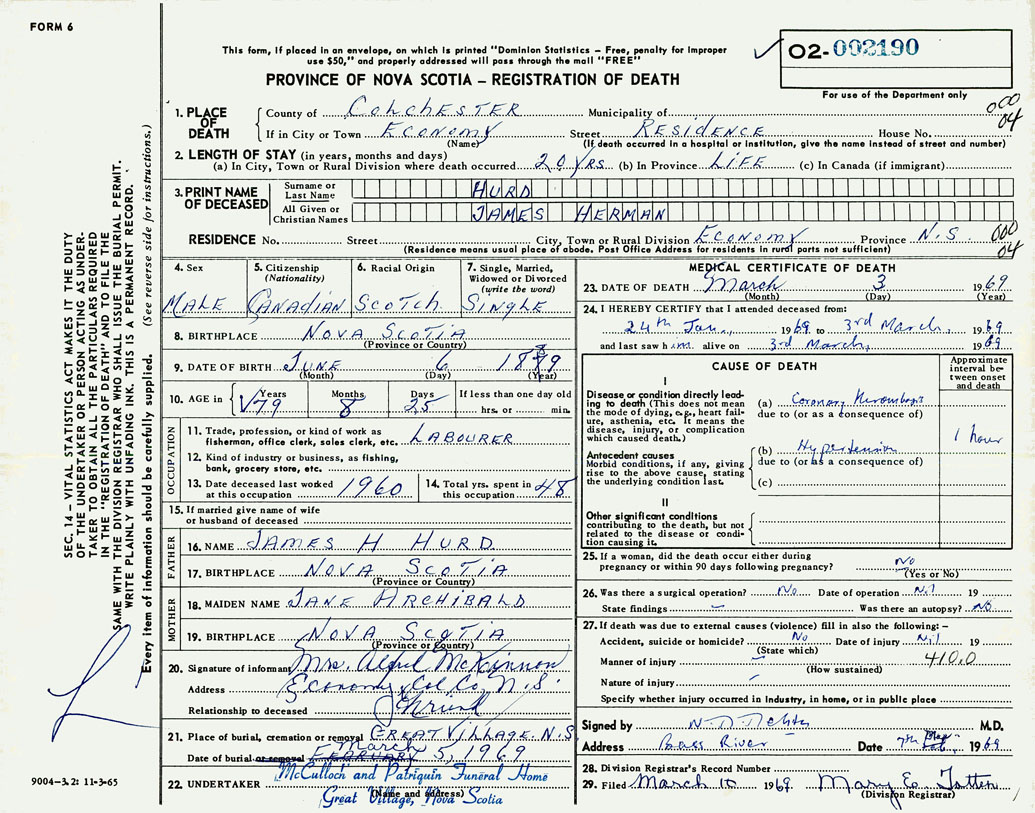 FORM 6
This form, if placed in an envelope, on which is printed "Dominion Statistics – Free, penalty for improper
use $50," and properly addressed will pass through the mail "FREE"
PROVINCE OF NOVA SCOTIA – REGISTRATION OF DEATH
02-002190
For use of the Department only
000
04
1. PLACE OF DEATH
County of COLCHESTER Municipality of
If in City or Town ECONOMY Street RESIDENCE House No.
(Name) (If death occurred in a hospital or institution, give the name instead of street and number)
2. LENGTH OF STAY (in years, months and days)
(a) In City, Town or Rural Division where death occurred 20 YRS (b) In Province LIFE (c) In Canada (if immigrant)
3. PRINT NAME OF DECEASED
Surname or Last Name HURD
All Given or Christian Names JAMES HERMAN
RESIDENCE No. Street City, Town or Rural Division ECONOMY Province N.S. 000
04
(Residence means usual place of abode. Post Office Address for residents in rural parts not sufficient)
4. Sex MALE
5. Citizenship (Nationality) CANADIAN
6. Racial Origin SCOTCH
7. Single, Married, Widowed or Divorced (write the word) SINGLE
8. BIRTHPLACE NOVA SCOTIA
(Province or Country)
9. DATE OF BIRTH JUNE 6 1889
(Month) (Day) (Year)
10. AGE in Years 79 Months 8 Days 25 If less than one day old hrs. or min.
OCCUPATION
11. Trade, profession, or kind of work as fisherman, office clerk, sales clerk, etc. LABOURER
12. Kind of industry or business, as fishing, bank, grocery store, etc.
13. Date deceased last worked at this occupation 1960
14. Total yrs. spent in this occupation 48
15. If married give name of wife or husband of deceased
FATHER
16. NAME JAMES H HURD
17. BIRTHPLACE NOVA SCOTIA
(Province or Country)
MOTHER
18. MAIDEN NAME JANE ARCHIBALD
19. BIRTHPLACE NOVA SCOTIA
(Province or Country)
20. Signature of informant Mrs. McKinnon
Address Economy, Col. Co., N.S.
Relationship to deceased friend
21. Place of burial, cremation or removal GREAT VILLAGE N.S
March
Date of burial or removal FEBRUARY 5, 1969
22. UNDERTAKER McCulloch and Patriquin Funeral Home
(Name and address)
Great Village, Nova Scotia
MEDICAL CERTIFICATE OF DEATH
23. DATE OF DEATH March 3 1969
(Month) (Day) (Year)
24. I HEREBY CERTIFY that I attended deceased from:
24th Jan, 1969 to 3rd March, 1969
and last saw him alive on 3rd March, 1969
CAUSE OF DEATH
Approximate interval between onset and death
I
Disease or condition directly leading to death (This does not mean the mode of dying, e.g., heart failure, asthenia, etc. It means the disease, injury, or complication which caused death.)
(a) Coronary thrombosis
due to (or as a consequence of)
1 hour
Antecedent causes
Morbid conditions, if any, giving rise to the above cause, stating the underlying condition last.
(b) Hypertension
due to (or as a consequence of)
(c)
II
Other significant conditions
contributing to the death, but not related to the disease or condition causing it.
25. If a woman, did the death occur either during pregnancy or within 90 days following pregnancy? No
(Yes or No)
26. Was there a surgical operation? No Date of operation Nil 19
State findings – Was there an autopsy? No
27. If death was due to external causes (violence) fill in also the following: –
Accident, suicide or homicide? No Date of injury Nil 19
(State which)
Manner of injury – 410.0
(How sustained)
Nature of injury –
Specify whether injury occurred in industry, in home, or in public place
Signed by M.D.
Address Bass River Date 7th 1969
28. Division Registrar's Record Number
29. Filed March 10 1969 Mary E. Totten
(Division Registrar)
SEC. 14 – VITAL STATISTICS ACT MAKES IT THE DUTY
OF THE UNDERTAKER OR PERSON ACTING AS UNDER-
TAKER TO OBTAIN ALL THE PARTICULARS REQUIRED
IN THE "REGISTRATION OF DEATH" AND TO FILE THE
SAME WITH THE DIVISION REGISTRAR WHO SHALL ISSUE THE BURIAL PERMIT.
WRITE PLAINLY WITH UNFADING INK. THIS IS A PERMANENT RECORD.
Every item of information should be carefully supplied. (See reverse side for instructions.)
9004-3.2: 11-3-65